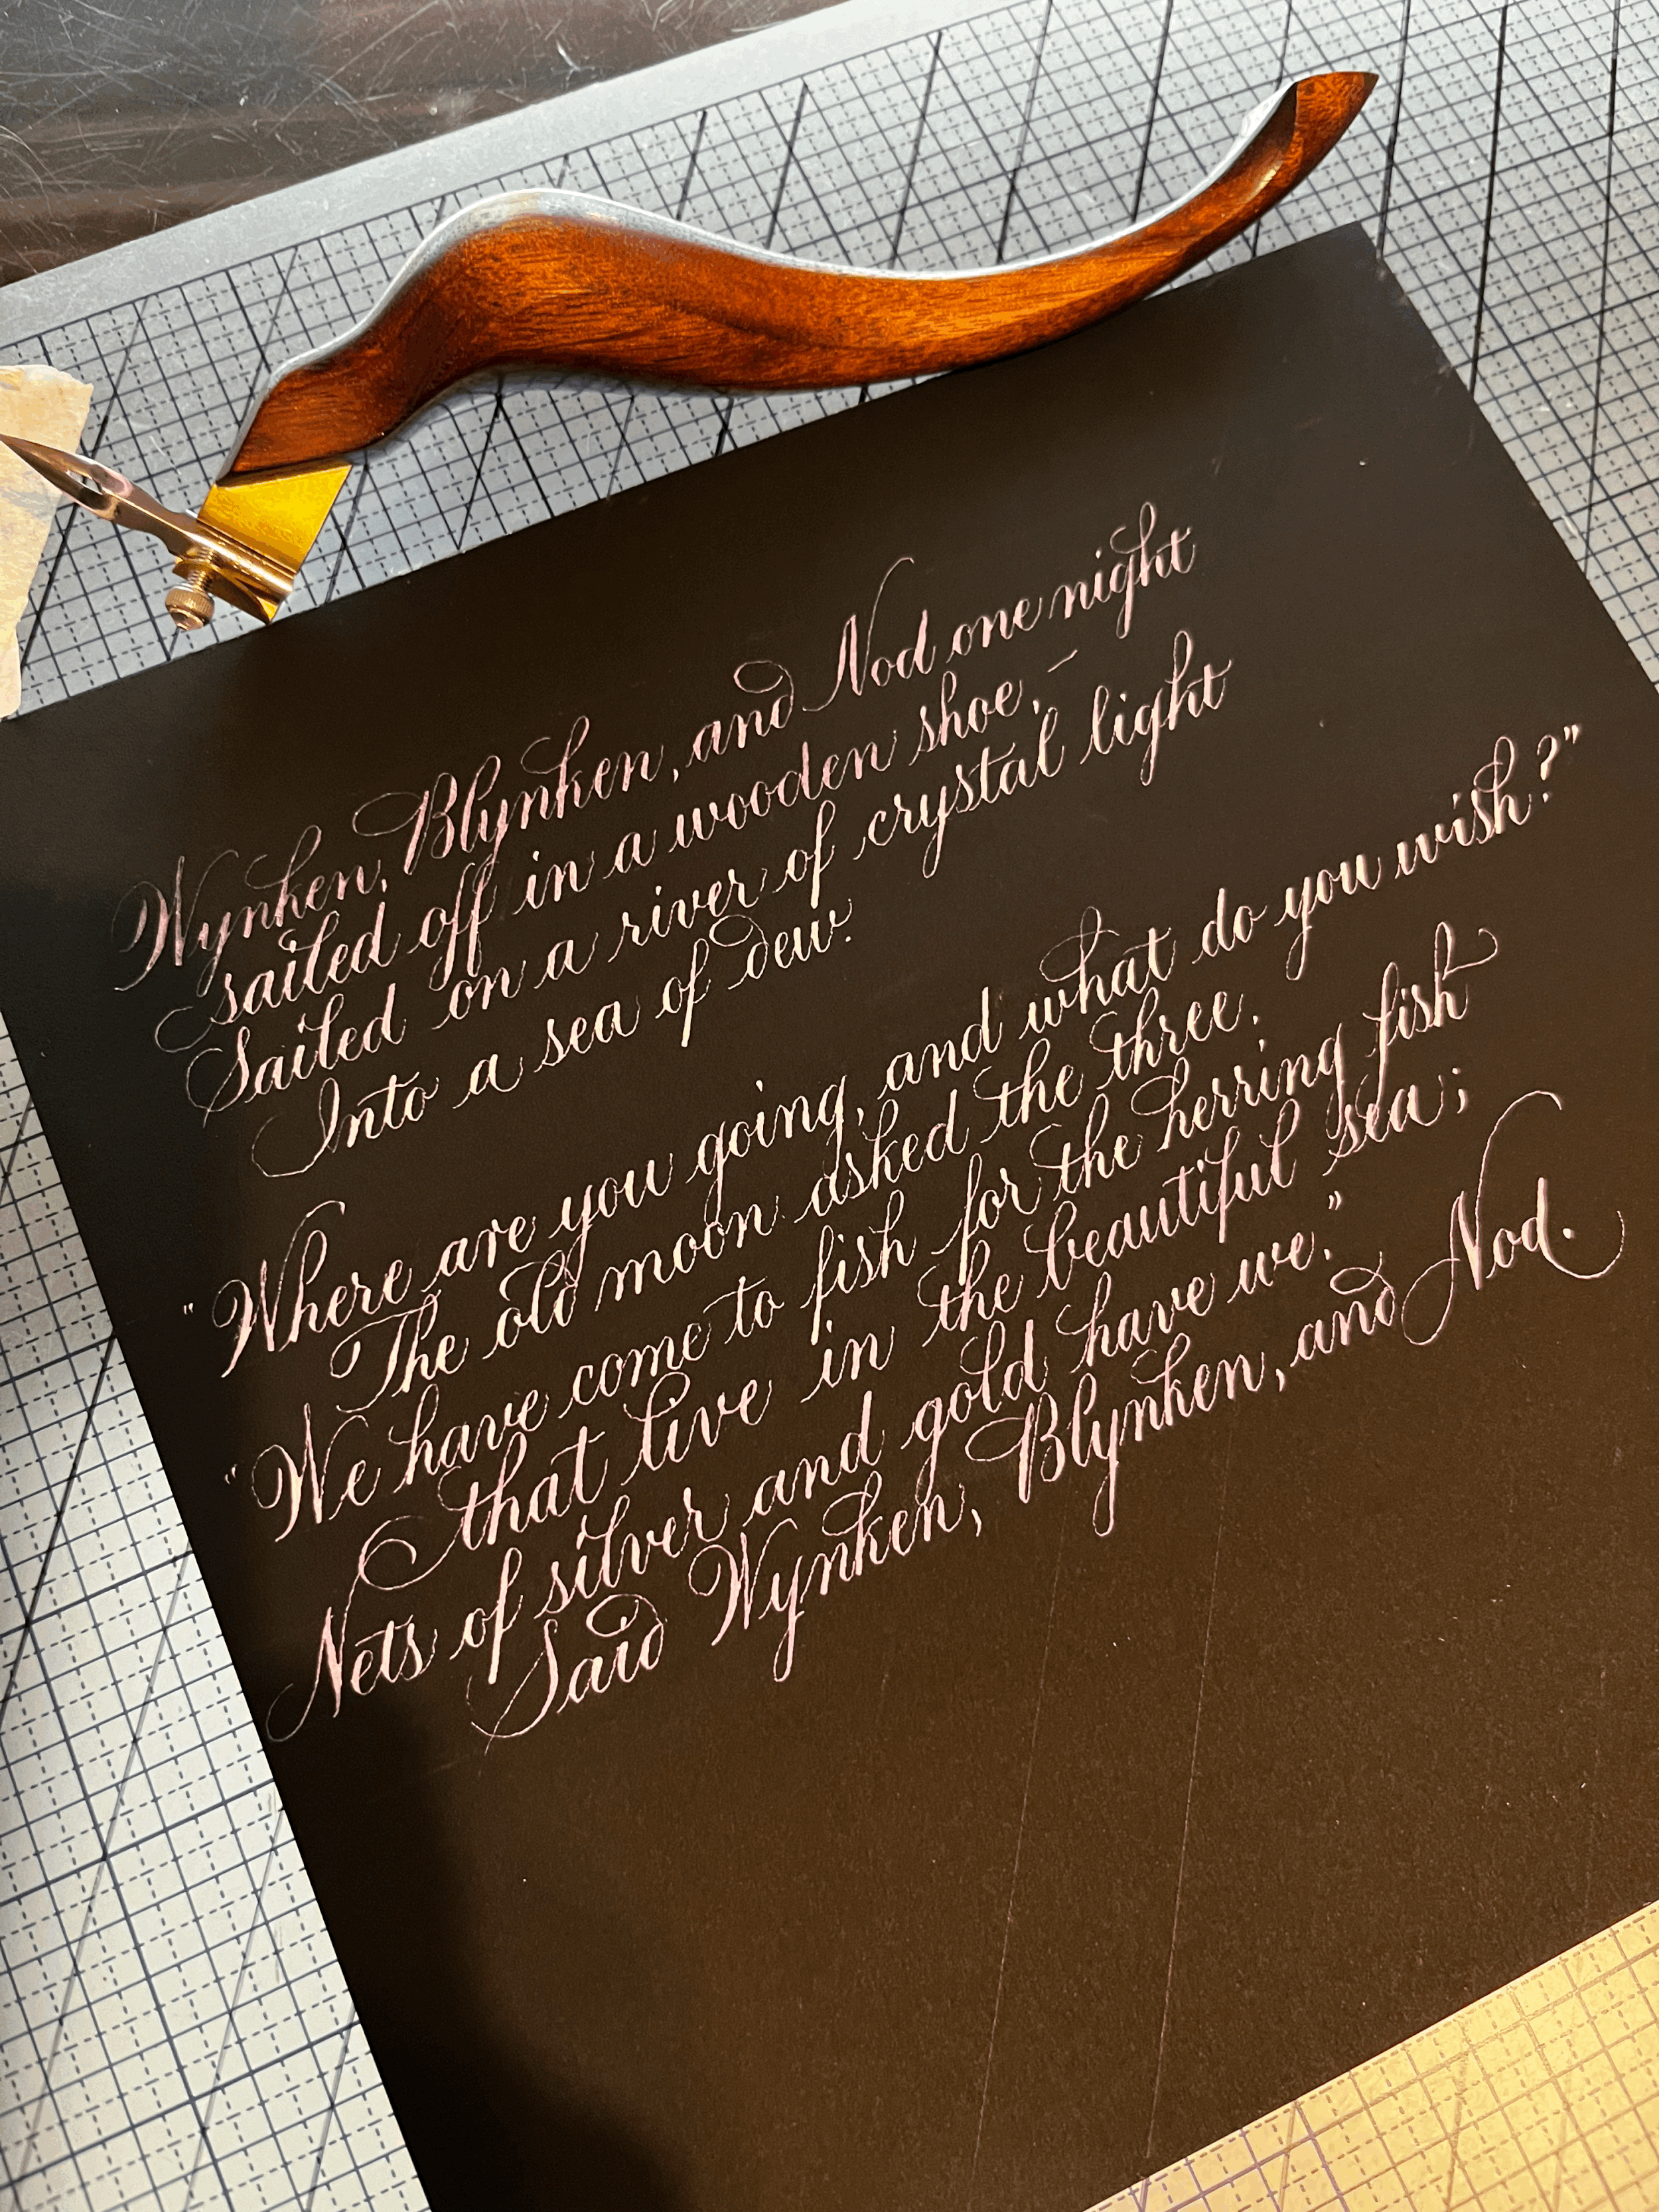 Wynken, Blynken, and Nod one night
sailed off in a wooden shoe, –
Sailed on a river of crystal light
Into a sea of dew.
"Where are you going, and what do you wish?"
The old moon asked the three.
"We have come to fish for the herring fish
that live in the beautiful sea;
Nets of silver and gold have we."
Said Wynken, Blynken, and Nod.